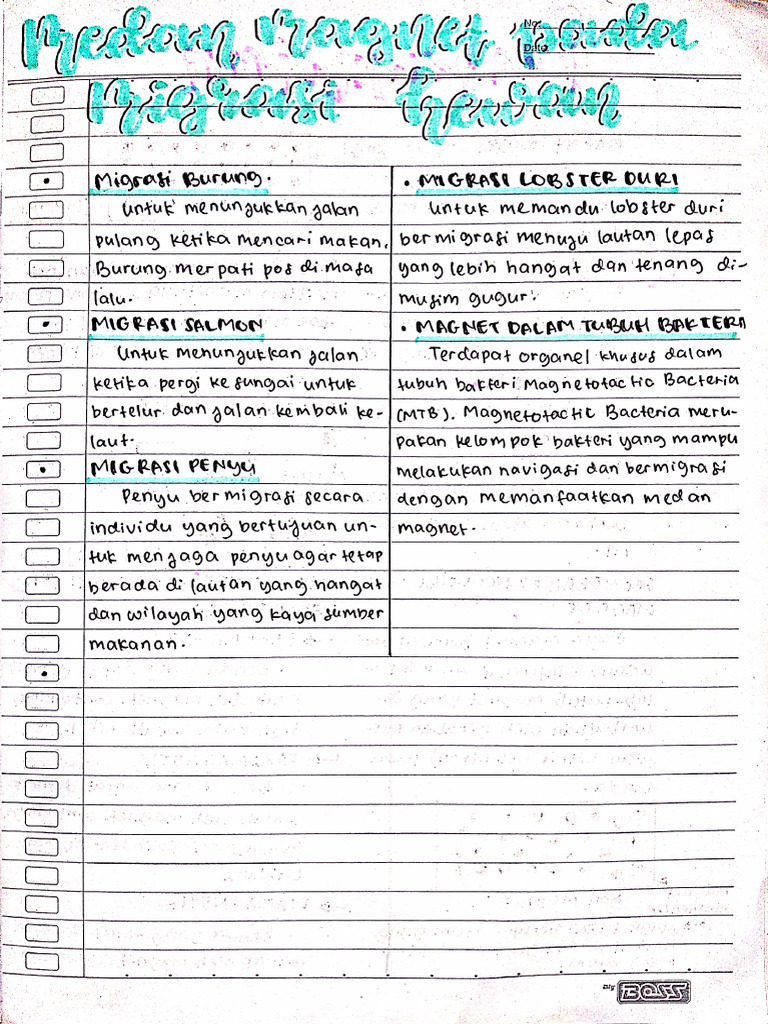 Medan Magnet pada
No:
Date
Migrasi Hewan
Migrasi Burung.
Untuk menunjukkan jalan
pulang ketika mencari makan,
Burung merpati pos di masa
lalu.
MIGRASI SALMON
Untuk menunjukkan jalan
ketika pergi ke sungai untuk
bertelur dan jalan kembali ke-
laut.
MIGRASI PENYU
Penyu bermigrasi secara
individu yang bertujuan un-
tuk menjaga penyu agar tetap
berada di lautan yang hangat
dan wilayah yang kaya sumber
makanan.
• MIGRASI LOBSTER DURI
Untuk memandu lobster duri
bermigrasi menuju lautan lepas
yang lebih hangat dan tenang di-
musim gugur.
• MAGNET DALAM TUBUH BAKTERI
Terdapat organel khusus dalam
tubuh bakteri Magnetotactic Bacteria
(MTB). Magnetotactic Bacteria meru-
pakan kelompok bakteri yang mampu
melakukan navigasi dan bermigrasi
dengan memanfaatkan medan
magnet.
Big BOSS